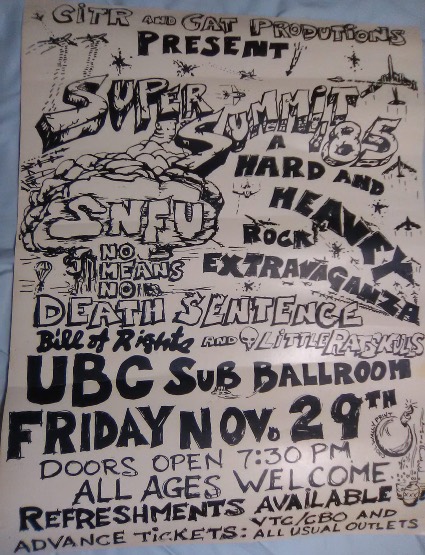 CiTR AND GAT PRODUTIONS
PRESENT
SUPER
SUMMIT
85
A
HARD AND
HEAVEY
ROCK
EXTRAVAGANZA
SNFU
NO
MEANS
NO
DEATH SENTENCE
Bill of Rights AND LITTLE RATSKULS
UBC SUB BALLROOM
FRIDAY NOV. 29TH
DOORS OPEN 7:30 PM
ALL AGES WELCOME
REFRESHMENTS AVAILABLE
ADVANCE TICKETS: VTC/CBO AND
ALL USUAL OUTLETS